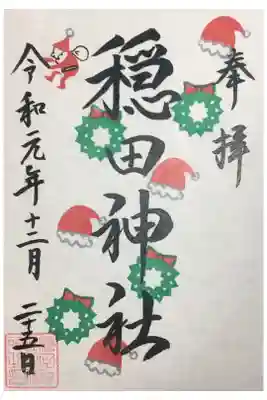 奉拝
穏田神社
令和元年十二月二五日